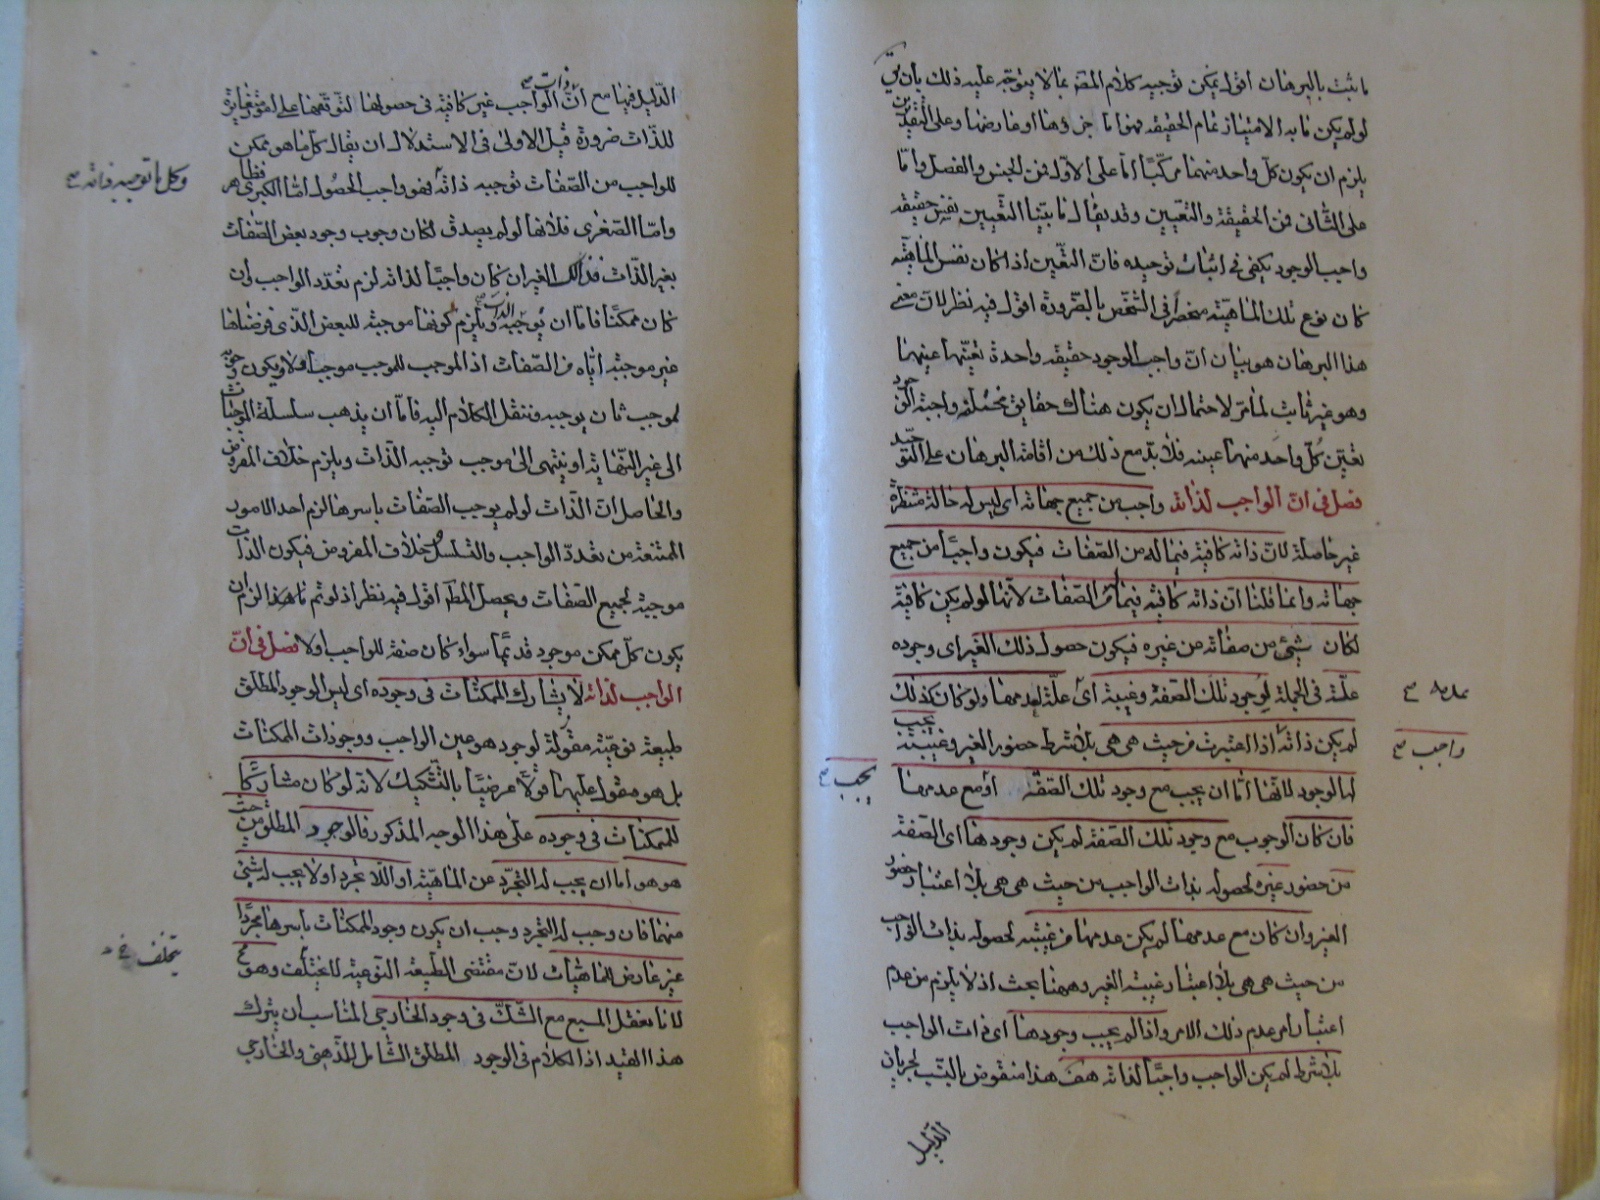 ما ثبت بالبرهان اقول يمكن توجيه كلام المصـ بما لا يتوجه عليه ذلك بان يق
لو لم يكن ما به الامتياز تمام الحقيقة فهو اما جزؤها او عارضها وعلى التقديرين
يلزم ان يكون كل واحد منهما مركبا اما على الاول فمن الجنس والفصل واما
على الثانى فمن الحقيقة والتعين وقد يقال ما بينا التعيين نفس حقيقة
واجب الوجود يكفى فى اثبات توحيده فان التعين اذا كان نفس الماهية
كان نوع تلك الماهية منحصرا فى الشخص بالضرورة اقول فيه نظر لان معنى
هذا البرهان هو بيان ان واجب الوجود حقيقة واحدة تعينها عينها
وهو غير ثابت لما مر لاحتمال ان يكون هناك حقايق مختلفة واجبة الوجود
تعين كل واحد منها عينه فلا بد مع ذلك من اقامة البرهان على التوحيد
فصل فى ان الواجب لذاته واجب من جميع جهاته اى ليس له حالة منتظرة
غير حاصلة لان ذاته كافية فيما له من الصفات فيكون واجبا من جميع
جهاته وانما قلنا ان ذاته كافية فيما له من الصفات لانها لو لم يكن كافية
لكان شيئ من صفاته من غيره فيكون حصول ذلك الغير اى وجوده
علة فى الجملة لوجود تلك الصفة وغيبته اى علة لعدمها ولو كان كذلك
عدمه صح
لم يكن ذاته اذا اعتبرت من حيث هى هى بلا شرط حضور الغير وغيبته يجب
واجب صح
لها الوجود لانها اما ان يجب مع وجود تلك الصفة او مع عدمها
يجب صح
فان كان الوجوب مع وجود تلك الصفة لم يكن وجودها اى الصفة
من حضور غيره لحصوله بذات الواجب من حيث هى هى بلا اعتبار حضور
الغير وان كان مع عدمها لم يكن عدمها من غيبته لحصوله بذات الواجب
من حيث هى هى بلا اعتبار غيبة الغير وههنا بحث اذ لا يلزم من عدم
اعتبار امر عدم ذلك الامر واذا لم يجب وجودها اى ذات الواجب
بلا شرط لم يكن الواجب واجبا لذاته هف هذا منقوض بالنسب لجريان
الدليل
الدليل فيها مع ان ذات الواجب غير كافية فى حصولها لتوقفها على امور مغايرة
للذات ضرورة قيل الاولى فى الاستدلال ان يقال كل ما هو ممكن
للواجب من الصفات توجبه ذاته فهو واجب الحصول اما الكبرى فظاهر
وكل ما توجبه ذاته صح
واما الصغرى فلانها لو لم يصدق لكان وجوب وجود بعض الصفات
بغير الذات فذلك الغير ان كان واجبا لذاته لزم تعدد الواجب وان
كان ممكنا فاما ان توجبه الذات صح ويلزم كونها موجبة للبعض الذى فرضناها
غير موجبة اياه من الصفات اذ الموجب للموجب موجب او لا ويكون وجوبه
لموجب ثان يوجبه وننقل الكلام اليه فاما ان يذهب سلسلة الموجبات
الى غير النهاية او ينتهى الى موجب توجبه الذات ويلزم خلاف المفروض
والحاصل ان الذات لو لم يوجب الصفات باسرها لزم احد الامور
الممتنعة من تعدد الواجب والتسلسل وخلاف المفروض فيكون الذات
موجبة لجميع الصفات ويحصل المطـ اقول فيه نظر اذ لو تم ما هذا لزم ان
يكون كل ممكن موجود قديما سواء كان صفة للواجب او لا فصل فى ان
الواجب لذاته لا يشارك الممكنات فى وجوده اى ليس الوجود المطلق
طبيعة نوعية مقولة لوجود هو عين الواجب ووجودات الممكنات
بل هو مقول عليها قولا عرضيا بالتشكيك لانه لو كان مشاركا
للممكنات فى وجوده على هذا الوجه المذكور فالوجود المطلق من حيث
هو هو اما ان يجب له التجرد عن الماهية او اللاتجرد او لا يجب له شيئ
منهما فان وجب له التجرد وجب ان يكون وجود الممكنات باسرها مجردا
غير عارض للماهيات لان مقتضى الطبيعة النوعية لا يختلف وهو مح
يتخلف خ
لانا نعقل المسبع مع الشك فى وجود الخارجى المناسب ان يترك
هذا القيد اذ الكلام فى الوجود المطلق الشامل للذهنى والخارجى